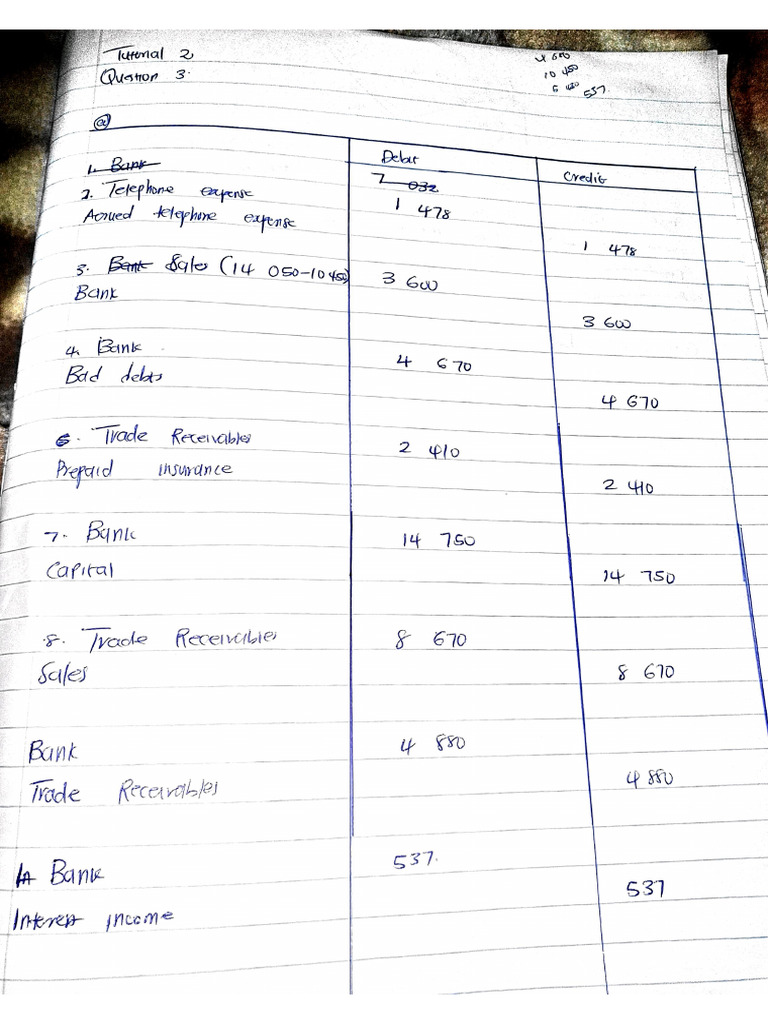 Tutorial 2
Question 3.
4 600
10 450
537.
(a)
Debit Credit
1. Bank 7 032
2. Telephone expense 1 478
Accrued telephone expense 1 478
3. Bank Sales (14 050-10 450) 3 600
Bank 3 600
4. Bank 4 670
Bad debts 4 670
6. Trade Receivables 2 410
Prepaid insurance 2 410
7. Bank 14 750
Capital 14 750
8. Trade Receivables 8 670
Sales 8 670
Bank 4 880
Trade Receivables 4 880
Bank 537.
Interest income 537